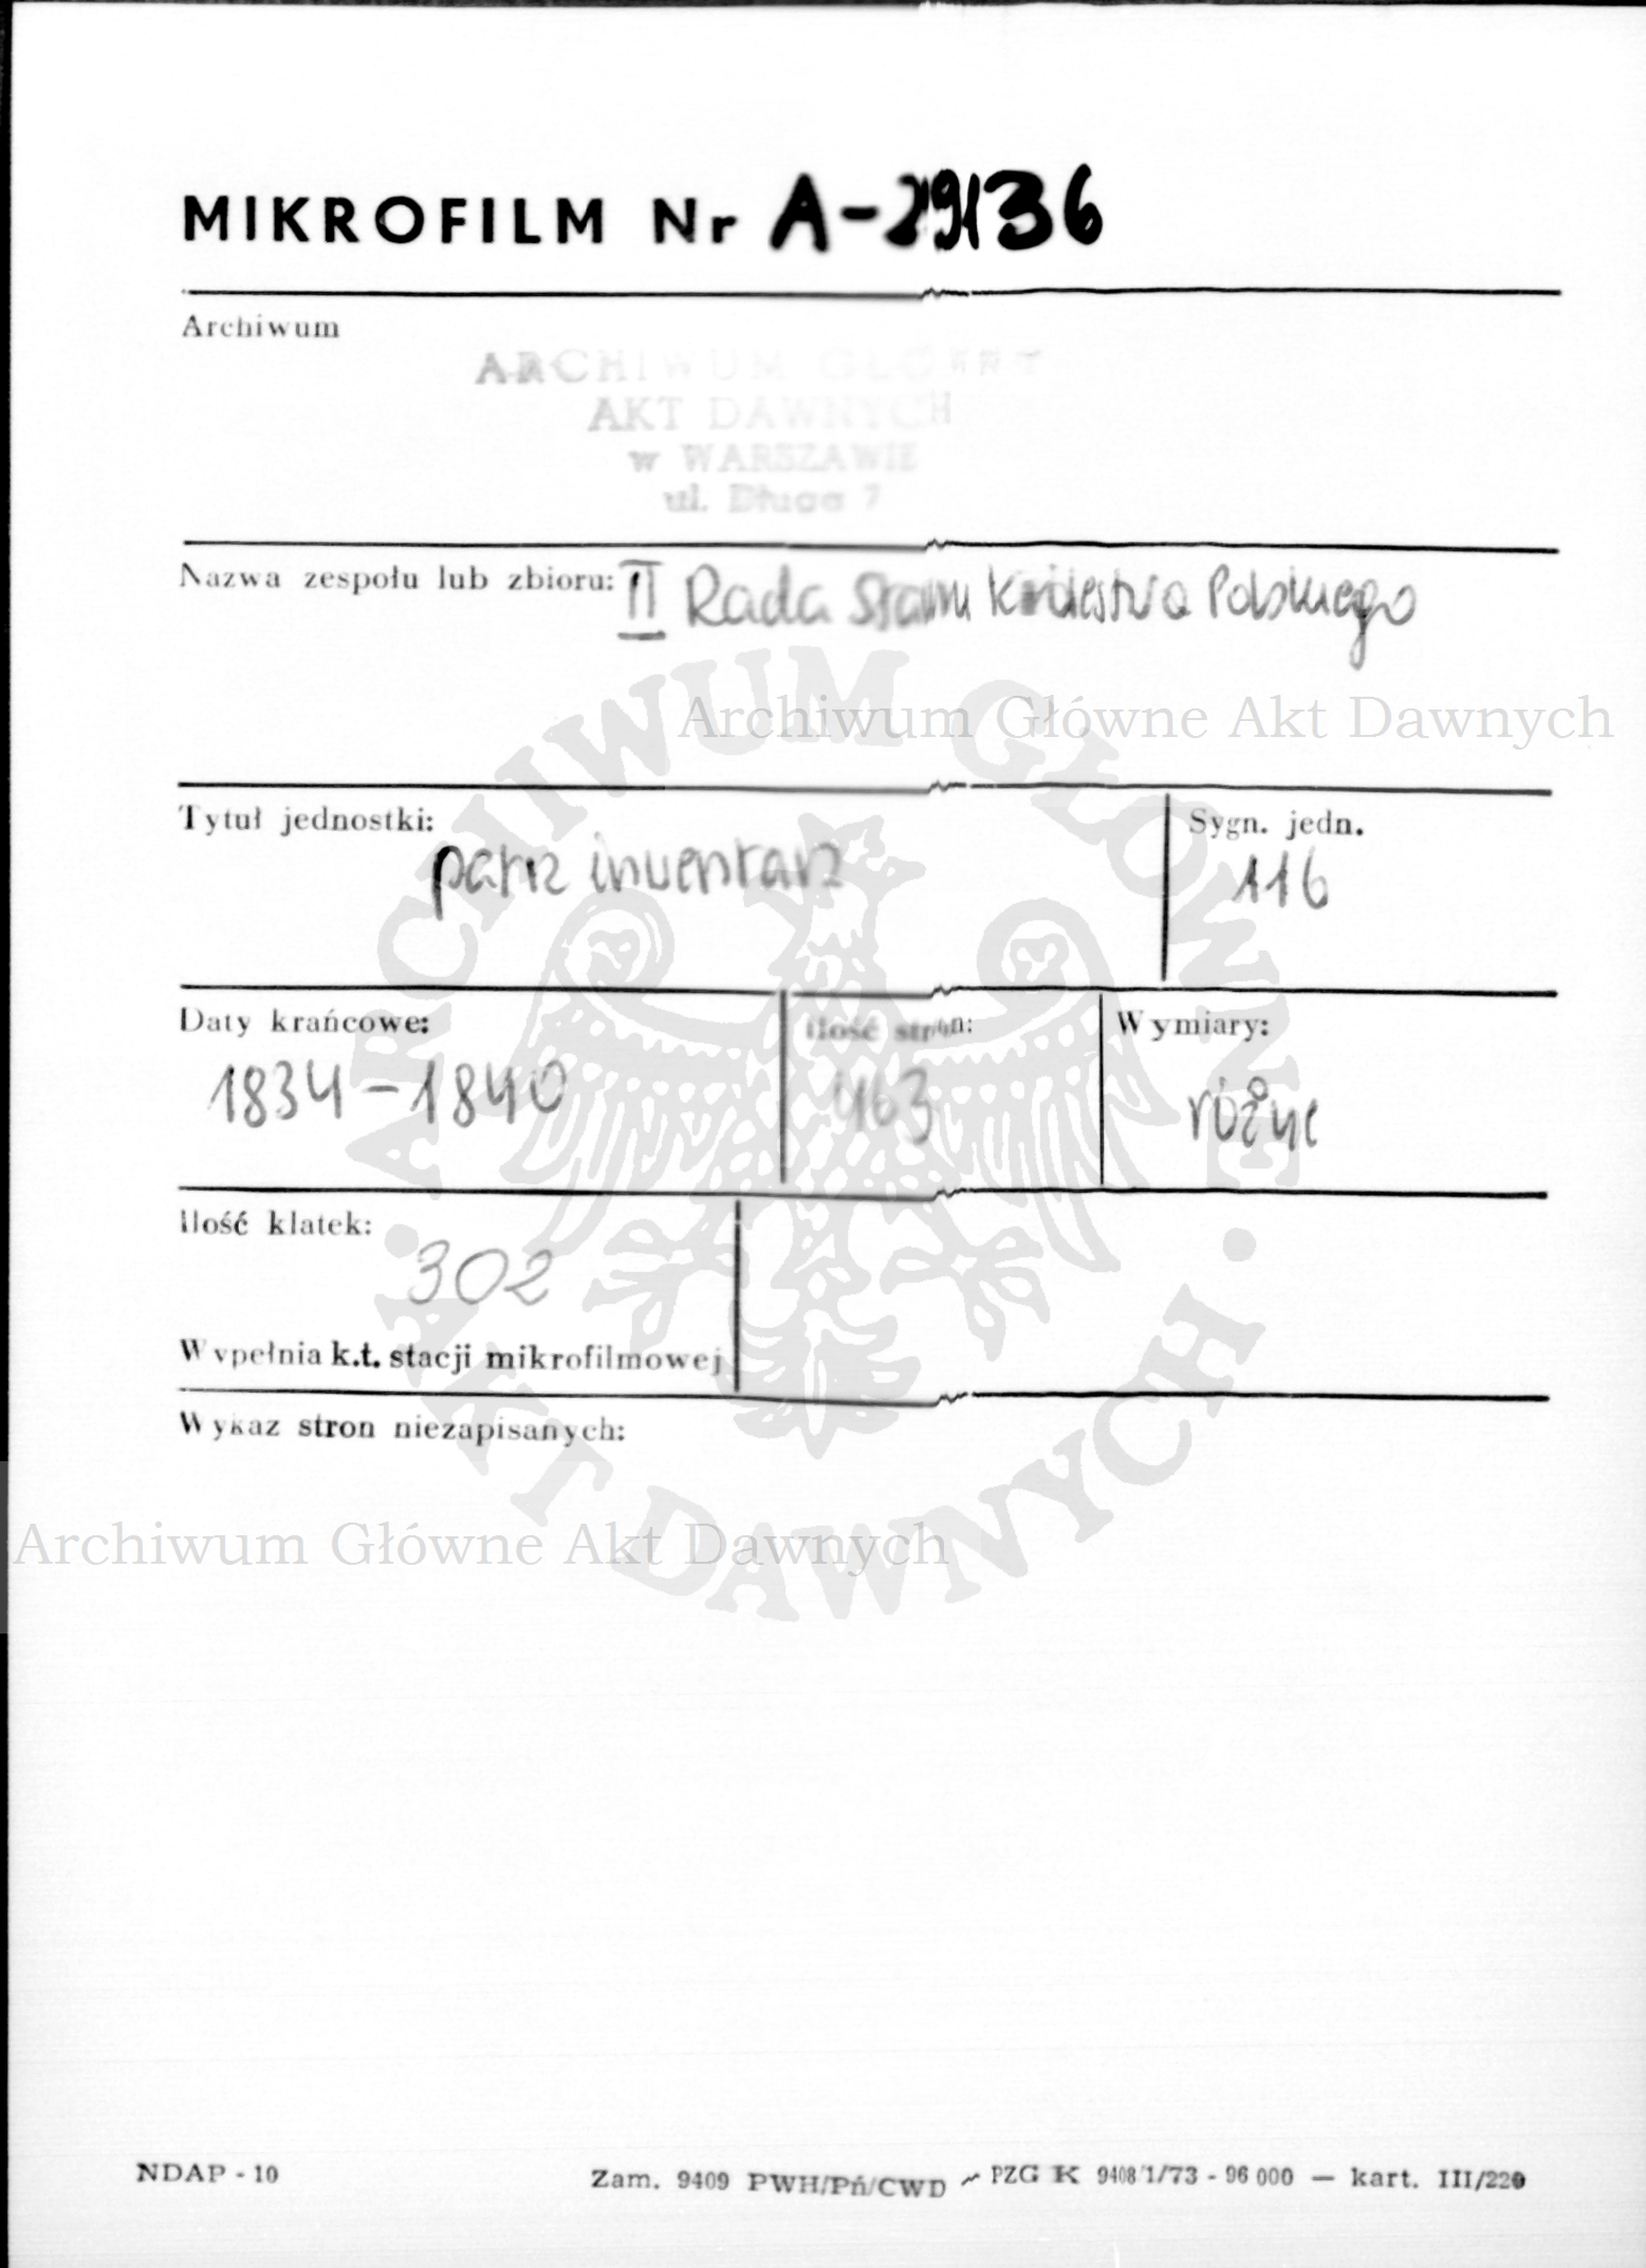 MIKROFILM Nr A-29136
Archiwum
ARCHIWUM GŁÓWNE
AKT DAWNYCH
w WARSZAWIE
ul. Długa 7
Nazwa zespołu lub zbioru: II Rada Stanu Królestwa Polskiego
Archiwum Główne Akt Dawnych
Tytuł jednostki:
patrz inwentarz
Sygn. jedn.
116
Daty krańcowe:
1834-1840
Ilość stron:
463
Wymiary:
różne
Ilość klatek:
302
Wypełnia k.t. stacji mikrofilmowej
Wykaz stron niezapisanych:
Archiwum Główne Akt Dawnych
ARCHIWUM GŁÓWNE
AKT DAWNYCH
NDAP - 10
Zam. 9409 PWH/Pń/CWD ~ PZG K 9408/1/73 - 96 000 — kart. III/220